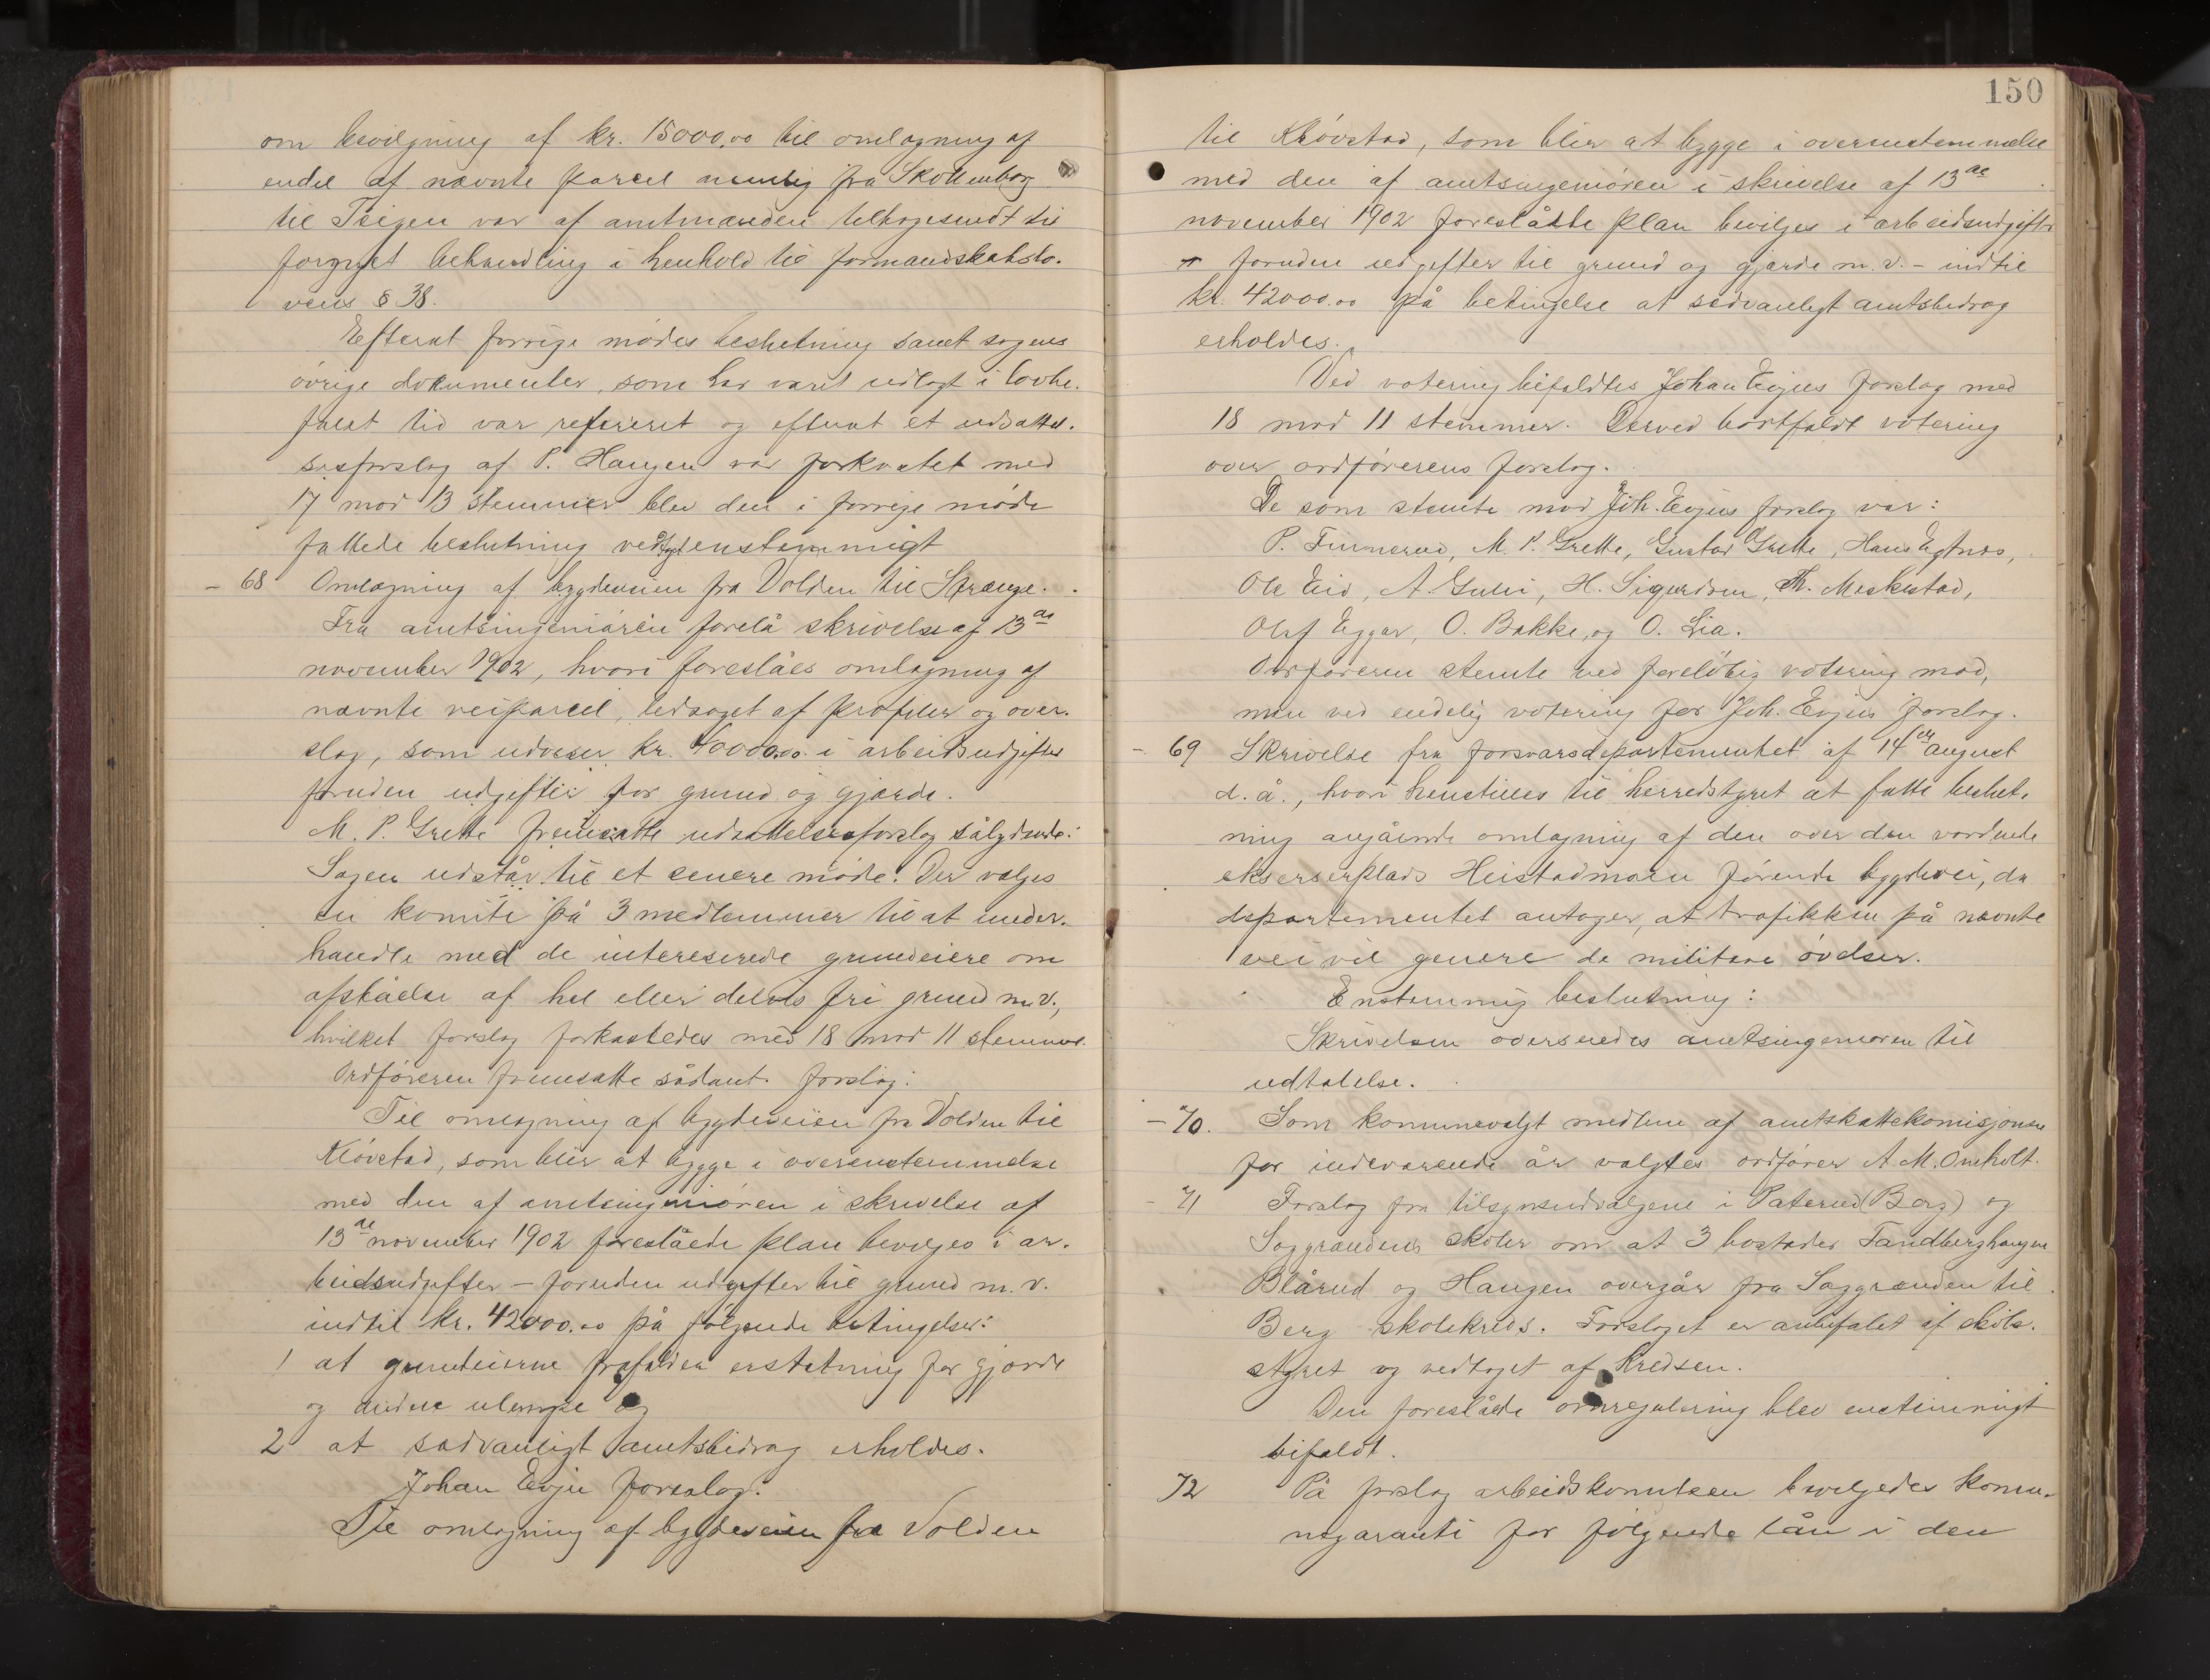 om bevilgning af kr. 15000,00 til omlægning af
endel af nævnte parcel nemlig fra Skollenborg
til Teigen var af amtmanden tilbagesendt til
fornyet behandling i henhold til formandskabslo-
vens § 38.
Efterat forrige mødes beslutning samt sagens
øvrige dokumenter, som har været udlagt i lovbe-
falet tid var refereret og efterat et udsættel-
sesforslag af P. Haugen var forkastet med
17 mod 13 stemmer blev den i forrige møde
fattede beslutning vedtaget enstemmigt
- 68 Omlægning af bygdeveien fra Volden til Stränge.
Fra amtsingeniøren forelå skrivelse af 13de
november 1902, hvori foreslåes omlægning af
nævnte veiparcel, ledsaget af profiler og over-
slag, som udviser kr. 40000.00 i arbeidsudgifter
foruden udgifter for grund og gjærde.
M. P. Grette fremsatte udsættelsesforslag sålydende:
Sagen udstår til et senere møde. Der vælges
en komite på 3 medlemmer til at under-
handle med de interesserede grundeiere om
afståelse af hel eller delvis fri grund m.v.,
hvilket forslag forkastedes med 18 mod 11 stemmer.
Ordføreren fremsatte sådant forslag:
Til omlægning af bygdeveien fra Volden til
Kløvstad, som blir at bygge i overensstemmelse
med den af amtsingeniøren i skrivelse af
13de november 1902 foreslåede plan bevilges i ar-
beidsudgifter – foruden udgifter til grund m.v.
indtil kr. 42000.00 på følgende betingelser:
1 at grundeierne frafalder erstatning for gjærde
og anden ulempe og
2 at sædvanligt amtsbidrag erholdes.
Johan Evju forslog:
Til omlægning af bygdeveien fra Volden
150
til Kløvstad, som blir at bygge i overensstemmelse
med den af amtsingeniøren i skrivelse af 13de
november 1902 foreslåede plan bevilges i arbeidsudgifter
– foruden udgifter til grund og gjærde m.v. – indtil
kr. 42000.00 på betingelse at sædvanligt amtsbidrag
erholdes.
Ved votering bifaldtes Johan Evjus forslag med
18 mod 11 stemmer. Derved bortfaldt votering
over ordførerens forslag.
De som stemte mod Joh. Evjus forslag var:
P. M. P. Grette, Gustav Grette, Hans
Ole Eid, A. Gulli, H. Sigurdsen, Th. Meskestad,
Olaf Eggar, O. Bakke, og O. Lia.
Ordføreren stemte ved foreløbig votering mod,
men ved endelig votering for Joh. Evjus forslag.
- 69 Skrivelse fra forsvarsdepartementet af 14de august
d.å., hvori henstilles til herredstyret at fatte beslut-
ning angående omlægning af den over den vordende
ekserserplads Heistadmoen førende bygdevei, da
departementet antager, at trafikken på nævnte
vei vil genere de militære øvelser.
Enstemmig beslutning:
Skrivelsen oversendes amtsingeniøren til
udtalelse.
- 70. Som kommunevalgt medlem af amtskattekomisjonen
for indeværende år valgtes ordfører A. M. Omholt.
- 71 Forslag fra tilsynsudvalgene i Paterud (Berg) og
Saggrændens skoler om at 3 bosteder Tandberghaugen
Blårud og Haugen overgår fra Saggrænden til
Berg skolekreds. Forslaget er anbefalet af skole-
styret og vedtaget af kredsen.
Den foreslåede omregulering blev enstemmigt
bifaldt.
72 På forslag arbeidskomiteen bevilgedes kommu-
negaranti for følgende lån i den